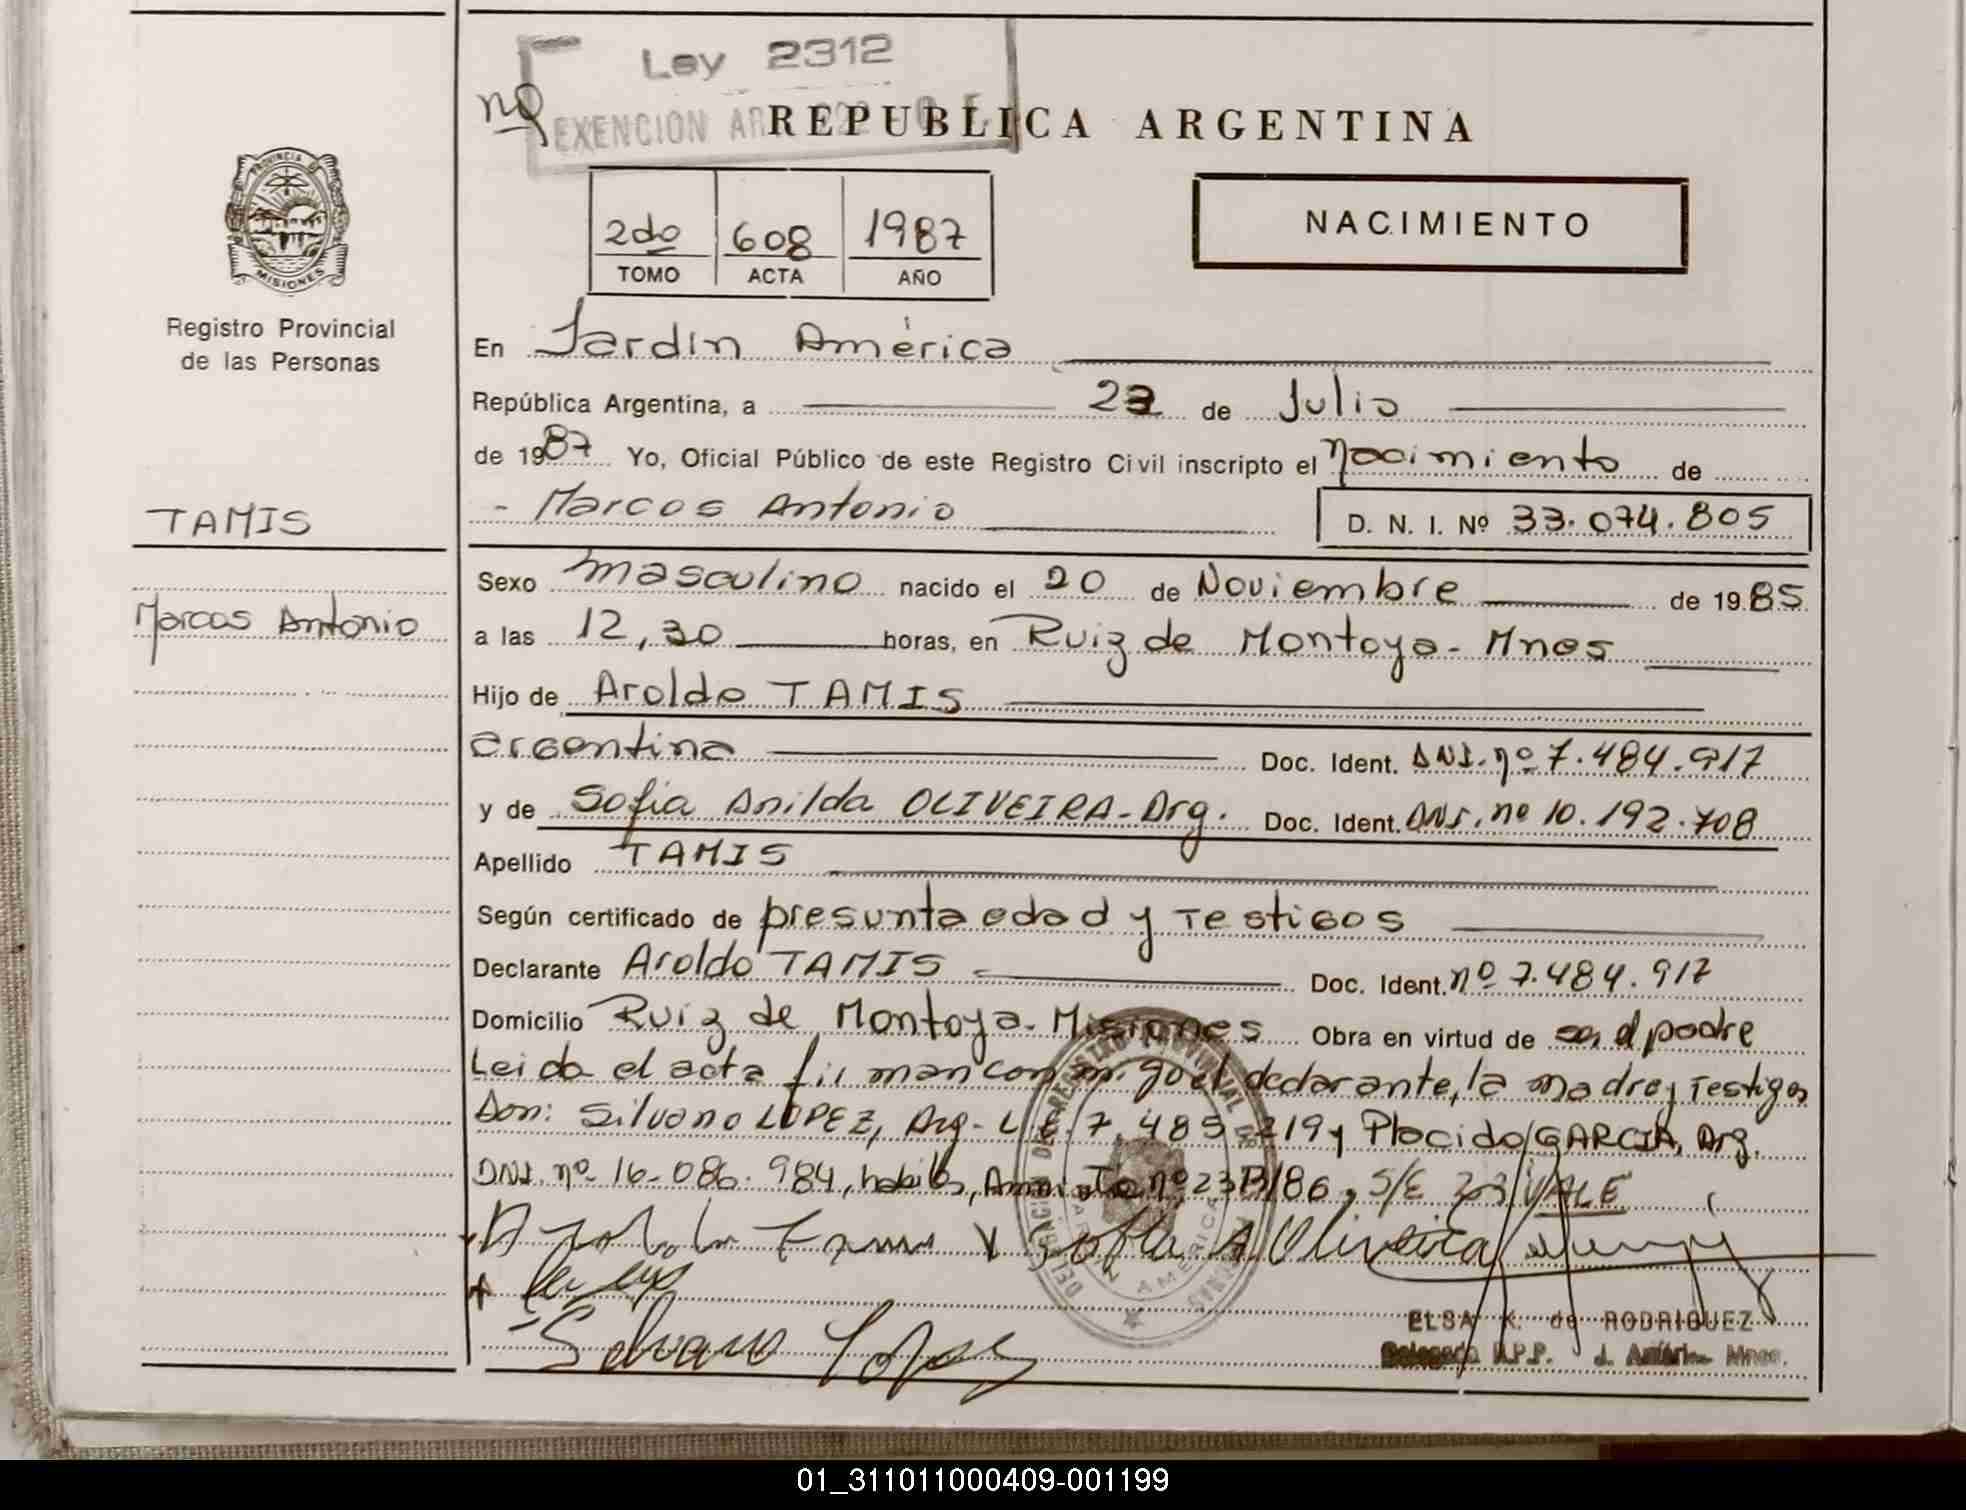 Ley 2312
nº EXENCION AR
REPUBLICA ARGENTINA
PROVINCIA DE
MISIONES
2do 608 1987
TOMO ACTA AÑO
NACIMIENTO
Registro Provincial
de las Personas
En Jardin América
República Argentina, a 23 de Julio
de 1987 Yo, Oficial Público de este Registro Civil inscripto el Nacimiento de
- Marcos Antonio
D. N. I. Nº 33.074.805
TAMIS
Marcos Antonio
Sexo masculino nacido el 20 de Noviembre de 1985
a las 12,30 horas, en Ruiz de Montoya - Mnes
Hijo de Aroldo TAMIS
argentina Doc. Ident. DNI. nº 7.484.917
y de Sofia Anilda OLIVEIRA - Arg. Doc. Ident. DNI. nº 10.192.708
Apellido TAMIS
Según certificado de presunta edad y Testigos
Declarante Aroldo TAMIS Doc. Ident. nº 7.484.917
Domicilio Ruiz de Montoya - Misiones Obra en virtud de ser el padre
Leida el acta firman conmigo el declarante, la madre y Testigos
Don: Silvano LOPEZ, Arg - L.E. 7.485.219 y Placido GARCIA, Arg.
DNI. nº 16.086.984, habiles, nº 2313/86, S/E 23 VALE
Sofia A. Oliveira
Silvano Lopez
DELEGACION DEL REGISTRO PROVINCIAL DE
JARDIN AMERICA
ELSA K. de RODRIGUEZ
Delegada R.P.P. J. América Mnes.
01_311011000409-001199